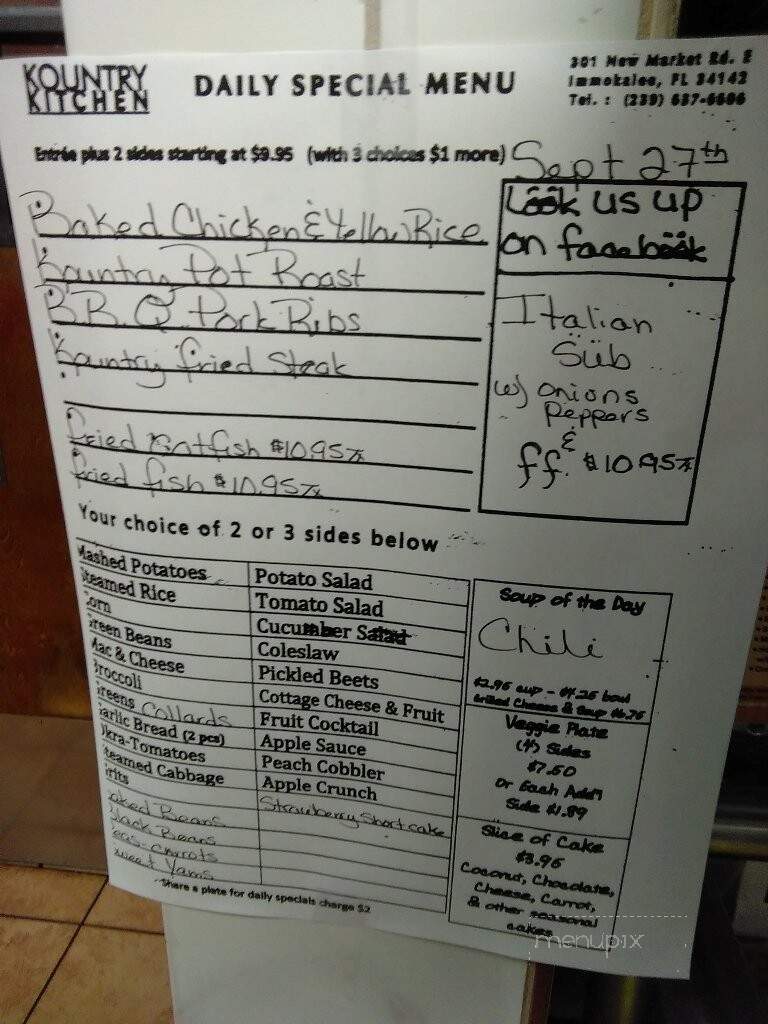 KOUNTRY
KITCHEN
DAILY SPECIAL MENU
301 New Market Rd. E
Immokalee, FL 34142
Tel. : (239) 657-6686
Entrée plus 2 sides starting at $9.95 (with 3 choices $1 more)
Sept 27th
Baked Chicken & Yellow Rice
Kountry Pot Roast
B.B.Q. Pork Ribs
Kountry fried Steak
fried Catfish $10.95
fried fish $10.95
Look us up
on facebook
Italian
Sub
w/ onions
Peppers
&
ff. $10.95
Your choice of 2 or 3 sides below
Mashed Potatoes
Steamed Rice
Corn
Green Beans
Mac & Cheese
Broccoli
Greens Collards
Garlic Bread (2 pcs)
Okra-Tomatoes
Steamed Cabbage
Grits
Baked Beans
Black Beans
Peas-Carrots
Sweet Yams
Potato Salad
Tomato Salad
Cucumber Salad
Coleslaw
Pickled Beets
Cottage Cheese & Fruit
Fruit Cocktail
Apple Sauce
Peach Cobbler
Apple Crunch
Strawberry Shortcake
Soup of the Day
Chili
$2.95 cup - $4.25 bowl
Grilled Cheese & Soup $6.75
Veggie Plate
(4) Sides
$7.50
Or Each Add'l
Side $1.89
Slice of Cake
$3.95
Coconut, Chocolate,
Cheese, Carrot,
& other seasonal
cakes
Share a plate for daily specials charge $2
menupix